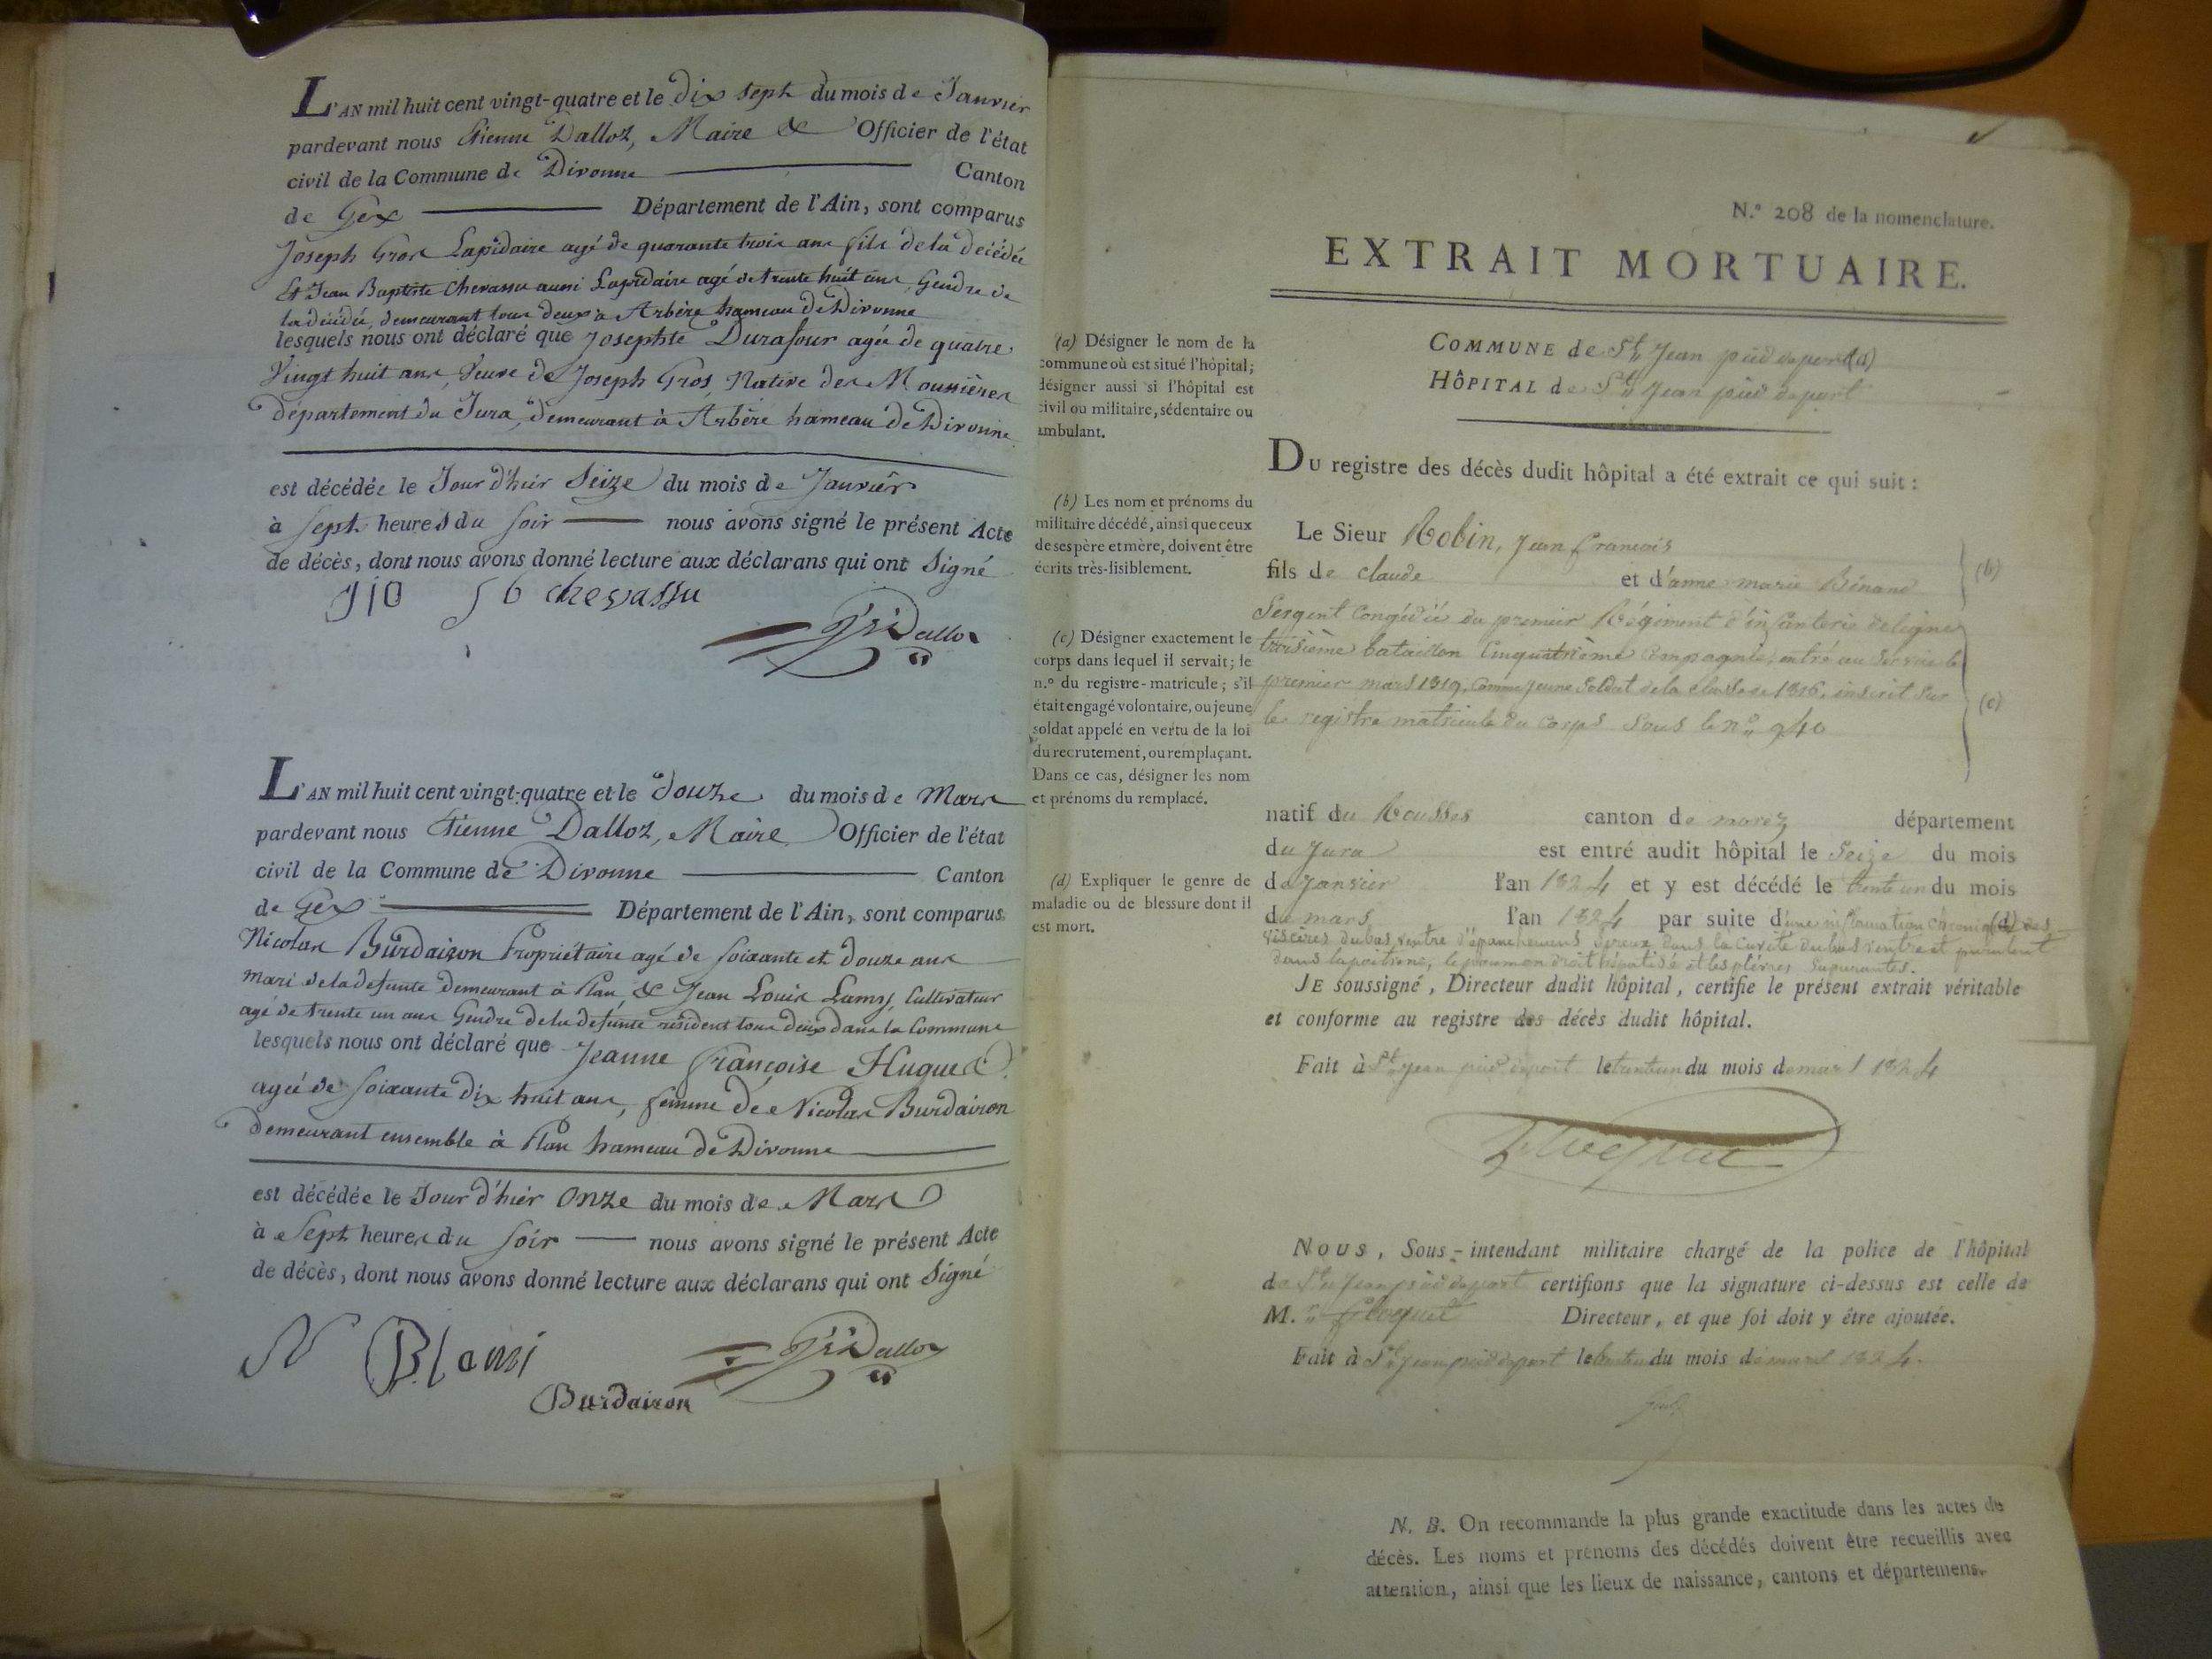 L'AN mil huit cent vingt-quatre et le dix sept du mois de Janvier
pardevant nous Etienne Dalloz, Maire & Officier de l'état
civil de la Commune de Divonne Canton
de Gex Département de l'Ain, sont comparus
Joseph Gros Lapidaire agé de quarante trois ans fils de la décédée
Et Jean Baptiste Chevassu aussi Lapidaire agé de trente huit ans, Gendre de
la décédée, demeurant tous deux à Arbère hameau de Divonne
lesquels nous ont déclaré que Josephte Durafour agée de quatre
Vingt huit ans, Veuve de Joseph Gros, Native des Moussières
département du Jura, demeurant à Arbère hameau de Divonne
est décédée le Jour d'hier Seize du mois de Janvier
à Sept heures du soir nous avons signé le présent Acte
de décès, dont nous avons donné lecture aux déclarans qui ont Signé
chevassu
Dalloz
L'AN mil huit cent vingt-quatre et le douze du mois de Mars
pardevant nous Etienne Dalloz, Maire Officier de l'état
civil de la Commune de Divonne Canton
de Gex Département de l'Ain, sont comparus
Nicolas Burdairon Propriétaire agé de soixante et douze ans
mari de la defunte demeurant à Plan, & Jean Louis Lamy, Cultivateur
agé de trente un ans Gendre de la defunte résident tous deux dans la Commune
lesquels nous ont déclaré que Jeanne Françoise Hugues
agée de soixante dix huit ans, femme de Nicolas Burdairon
demeurant ensemble à Plan hameau de Divonne
est décédée le Jour d'hier Onze du mois de Mars
à Sept heures du soir nous avons signé le présent Acte
de décès, dont nous avons donné lecture aux déclarans qui ont Signé
Dalloz
Burdairon
N.º 208 de la nomenclature.
EXTRAIT MORTUAIRE.
COMMUNE de St Jean pied de port (a)
HÔPITAL de St Jean pied de port
DU registre des décès dudit hôpital a été extrait ce qui suit :
Le Sieur Robin, Jean françois
fils de claude et d'anne marie Bénard (b)
Sergent Congédié du premier Régiment d'infanterie de ligne
troisième bataillon Cinquatrième Compagnie, entré au Service le
premier mars 1819, Comme Jeune Soldat de la classe de 1816, inscrit sur (c)
le registre matricule du Corps Sous le nº 940
natif du Rousses canton de morez département
du Jura est entré audit hôpital le Seize du mois
de Janvier l'an 1824 et y est décédé le trente un du mois
de mars l'an 1824 par suite d'une inflamation chronique (d) des
viscères du bas ventre d'épanchemens Sereux dans la Cavité du bas ventre et purulent
dans la poitrine, le poumon droit hépatisé et les plévres Supurantes.
JE soussigné, Directeur dudit hôpital, certifie le présent extrait véritable
et conforme au registre des décès dudit hôpital.
Fait à St Jean pied de port le trente un du mois de mars 1824
floquet
NOUS, Sous-intendant militaire chargé de la police de l'hôpital
de St Jean pied de port certifions que la signature ci-dessus est celle de
M.r floquet Directeur, et que foi doit y être ajoutée.
Fait à St Jean pied de port le trente un du mois de mars 1824.
N. B. On recommande la plus grande exactitude dans les actes de
décès. Les noms et prénoms des décédés doivent être recueillis avec
attention, ainsi que les lieux de naissance, cantons et départemens.
(a) Désigner le nom de la
commune où est situé l'hôpital;
désigner aussi si l'hôpital est
civil ou militaire, sédentaire ou
ambulant.
(b) Les nom et prénoms du
militaire décédé, ainsi que ceux
de ses père et mère, doivent être
écrits très-lisiblement.
(c) Désigner exactement le
corps dans lequel il servait; le
n.º du registre-matricule; s'il
était engagé volontaire, ou jeune
soldat appelé en vertu de la loi
du recrutement, ou remplaçant.
Dans ce cas, désigner les nom
et prénoms du remplacé.
(d) Expliquer le genre de
maladie ou de blessure dont il
est mort.